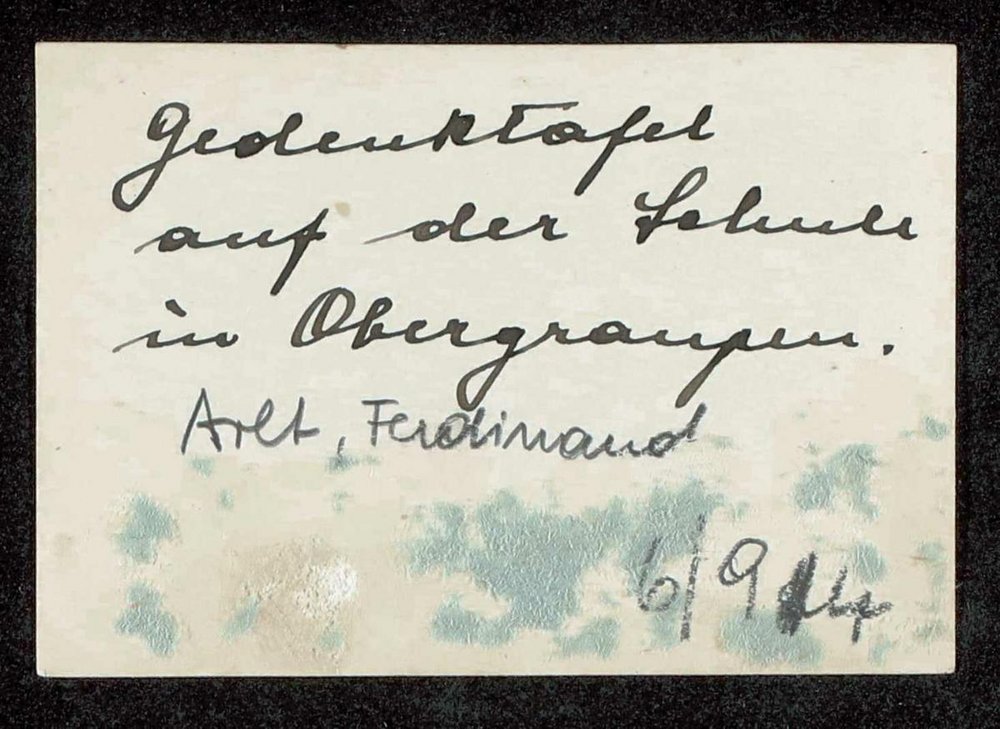 Gedenktafel
auf der Schule
in Obergraupen.
Arlt, Ferdinand
6/9